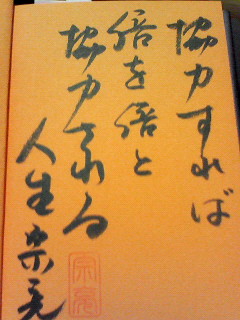 協力すれば
倍を倍と
協力される
人生宗亮
宗亮